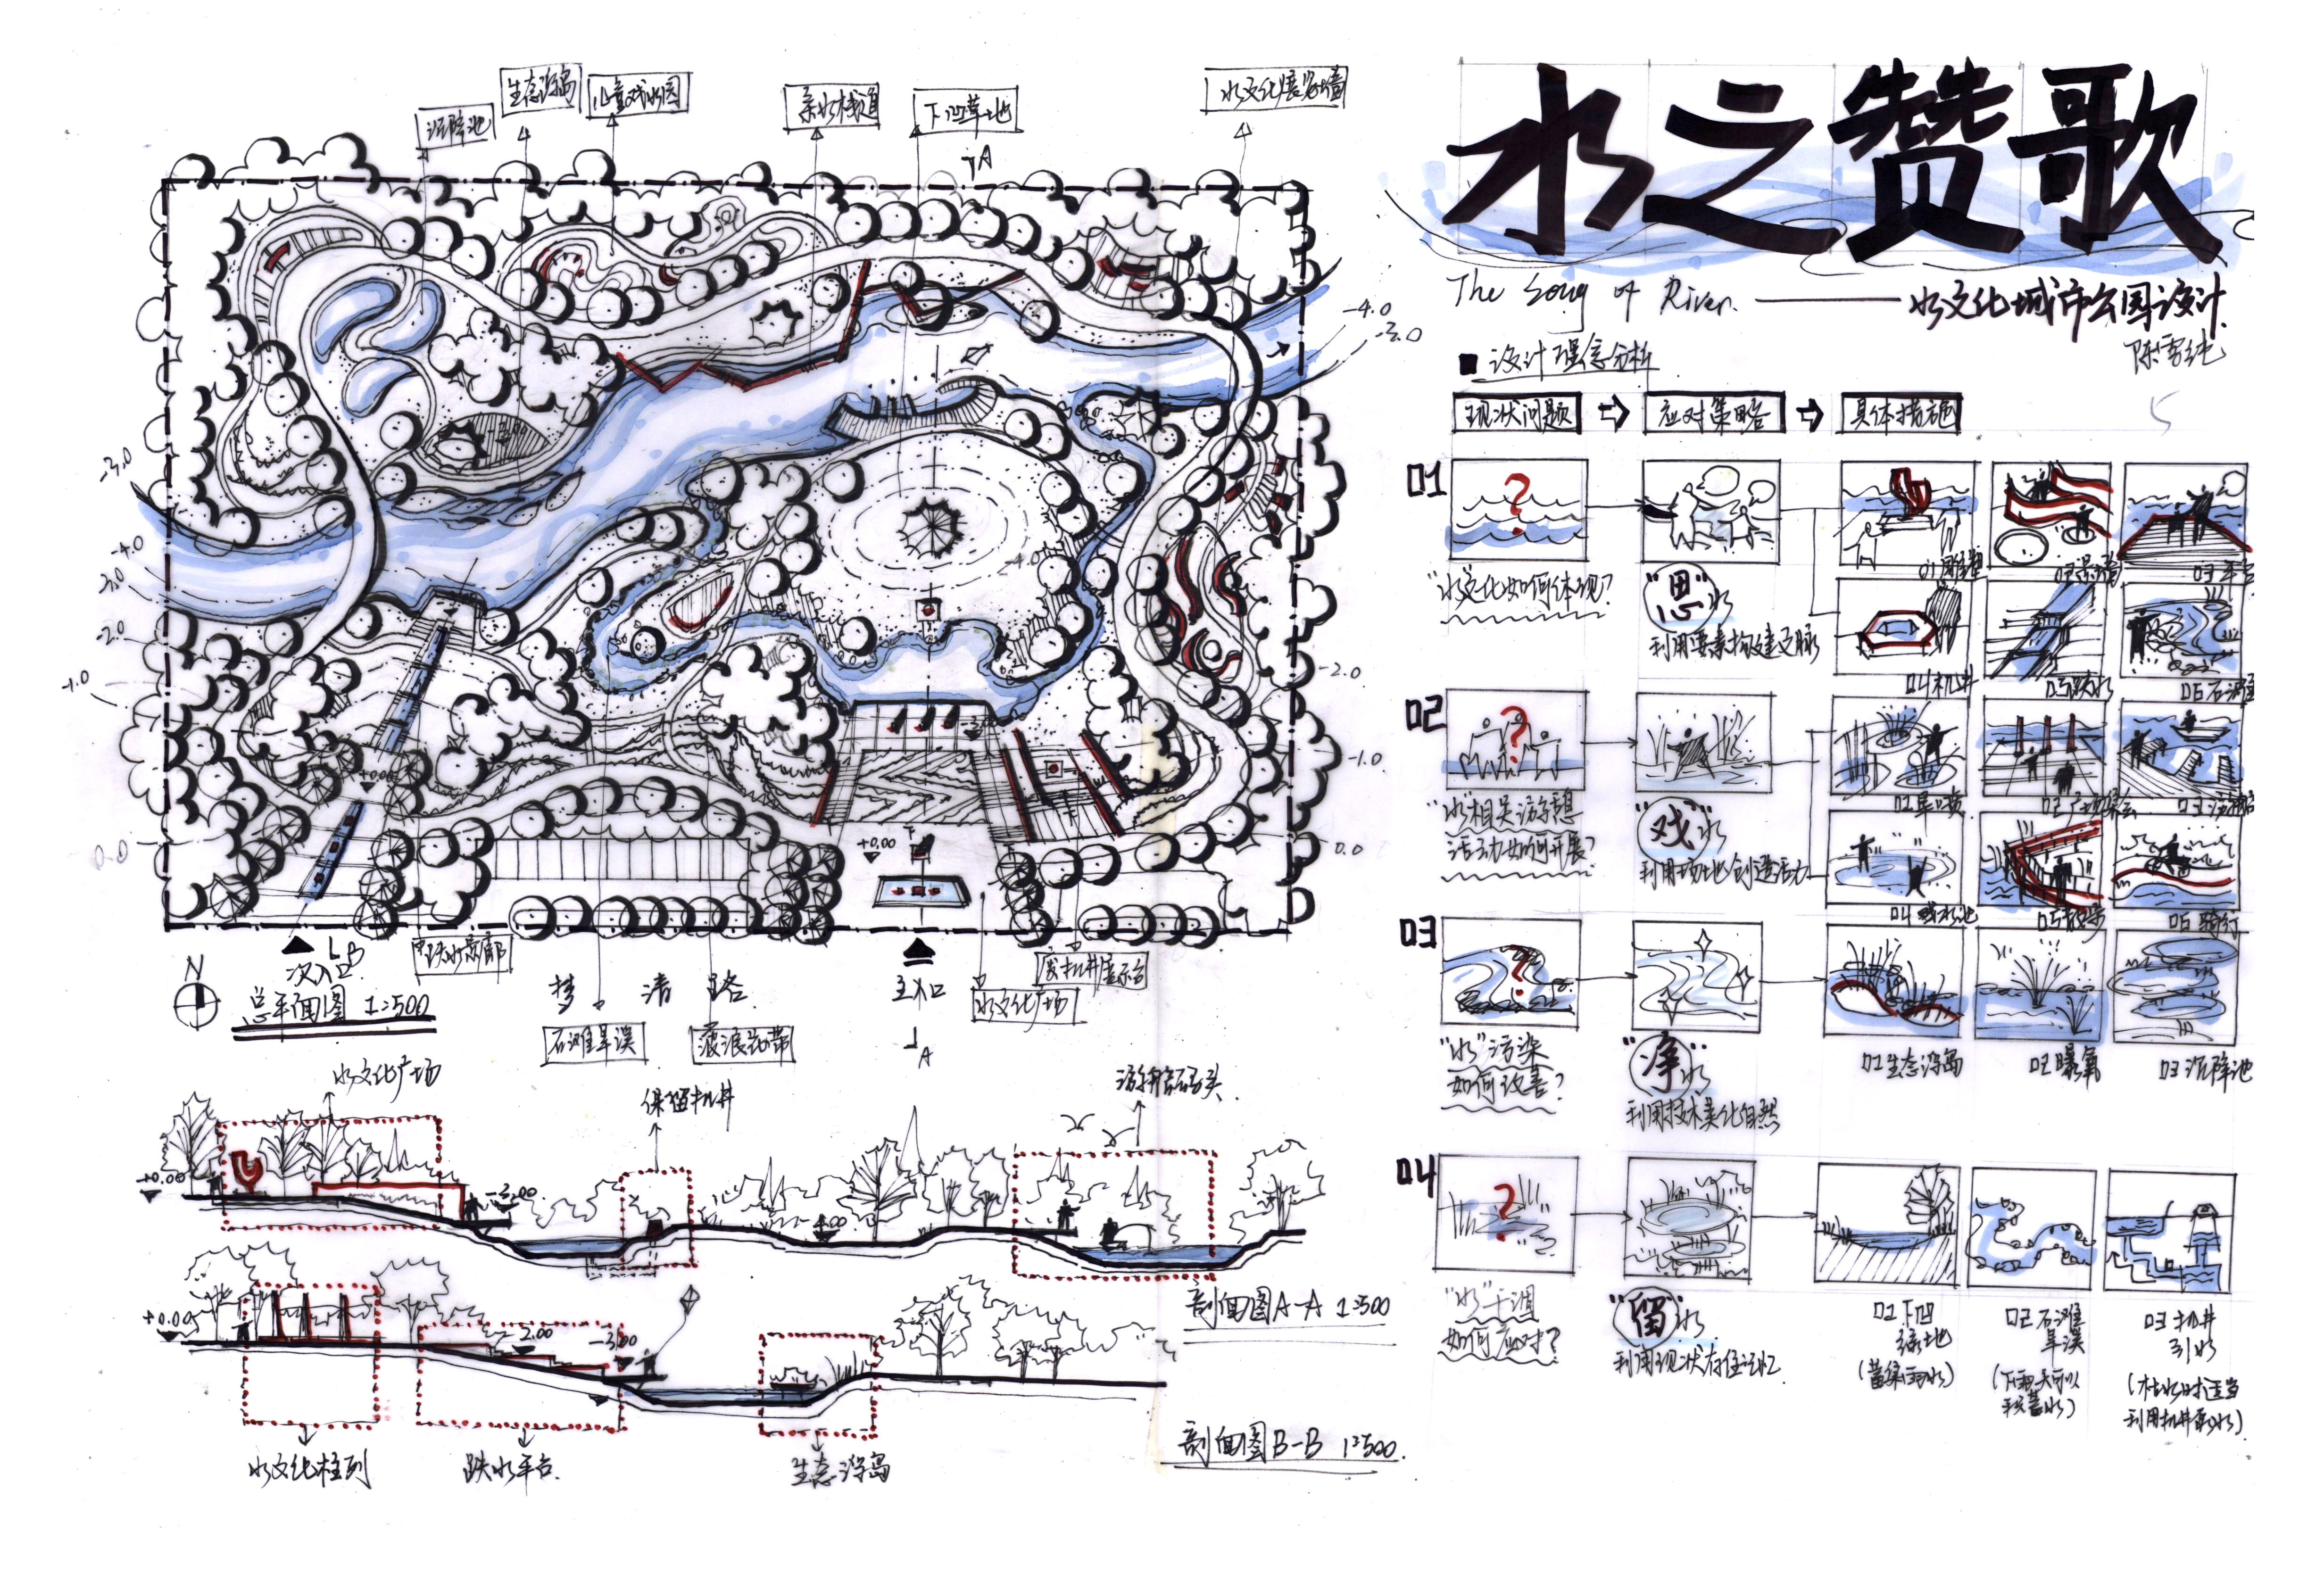 水之赞歌
The Song of River.
水文化城市公园设计
陈雪纯
设计理念分析
现状问题
应对策略
具体措施
沉降池
生态浮岛
儿童戏水园
亲水栈道
下凹草地
水文化展览墙
A
-4.0
-3.0
-3.0
-4.0
-3.0
-2.0
-1.0
0.0
-4.0
-2.0
-1.0
0.0
±0.00
±0.00
次入口
B
跌水景廊
梦清路
主入口
水文化广场
石滩旱溪
波浪花带
A
N
总平面图 1:500
水文化广场
保留机井
游船码头
±0.00
-3.00
-4.00
剖面图A-A 1:500
±0.00
-2.00
-3.00
水文化柱列
跌水平台
生态浮岛
剖面图B-B 1:500
01
"水"文化如何体现?
"思"水
利用要素构建文脉
01雕塑
02景墙
03平台
04机井
05跌水
06石滩
02
"水"相关游憩
活动如何开展?
"戏"水
利用场地创造活动
02广场集会
04戏水池
05散步
06骑行
03
"水"污染
如何改善?
"净"水
利用技术美化自然
01生态浮岛
02曝氧
03沉降池
04
"水"干涸
如何应对?
"留"水
利用现状存住记忆
01下凹
绿地
(蓄集雨水)
02石滩
旱溪
(下雨天可以
积蓄水)
03机井
引水
(枯水时适当
利用机井取水)